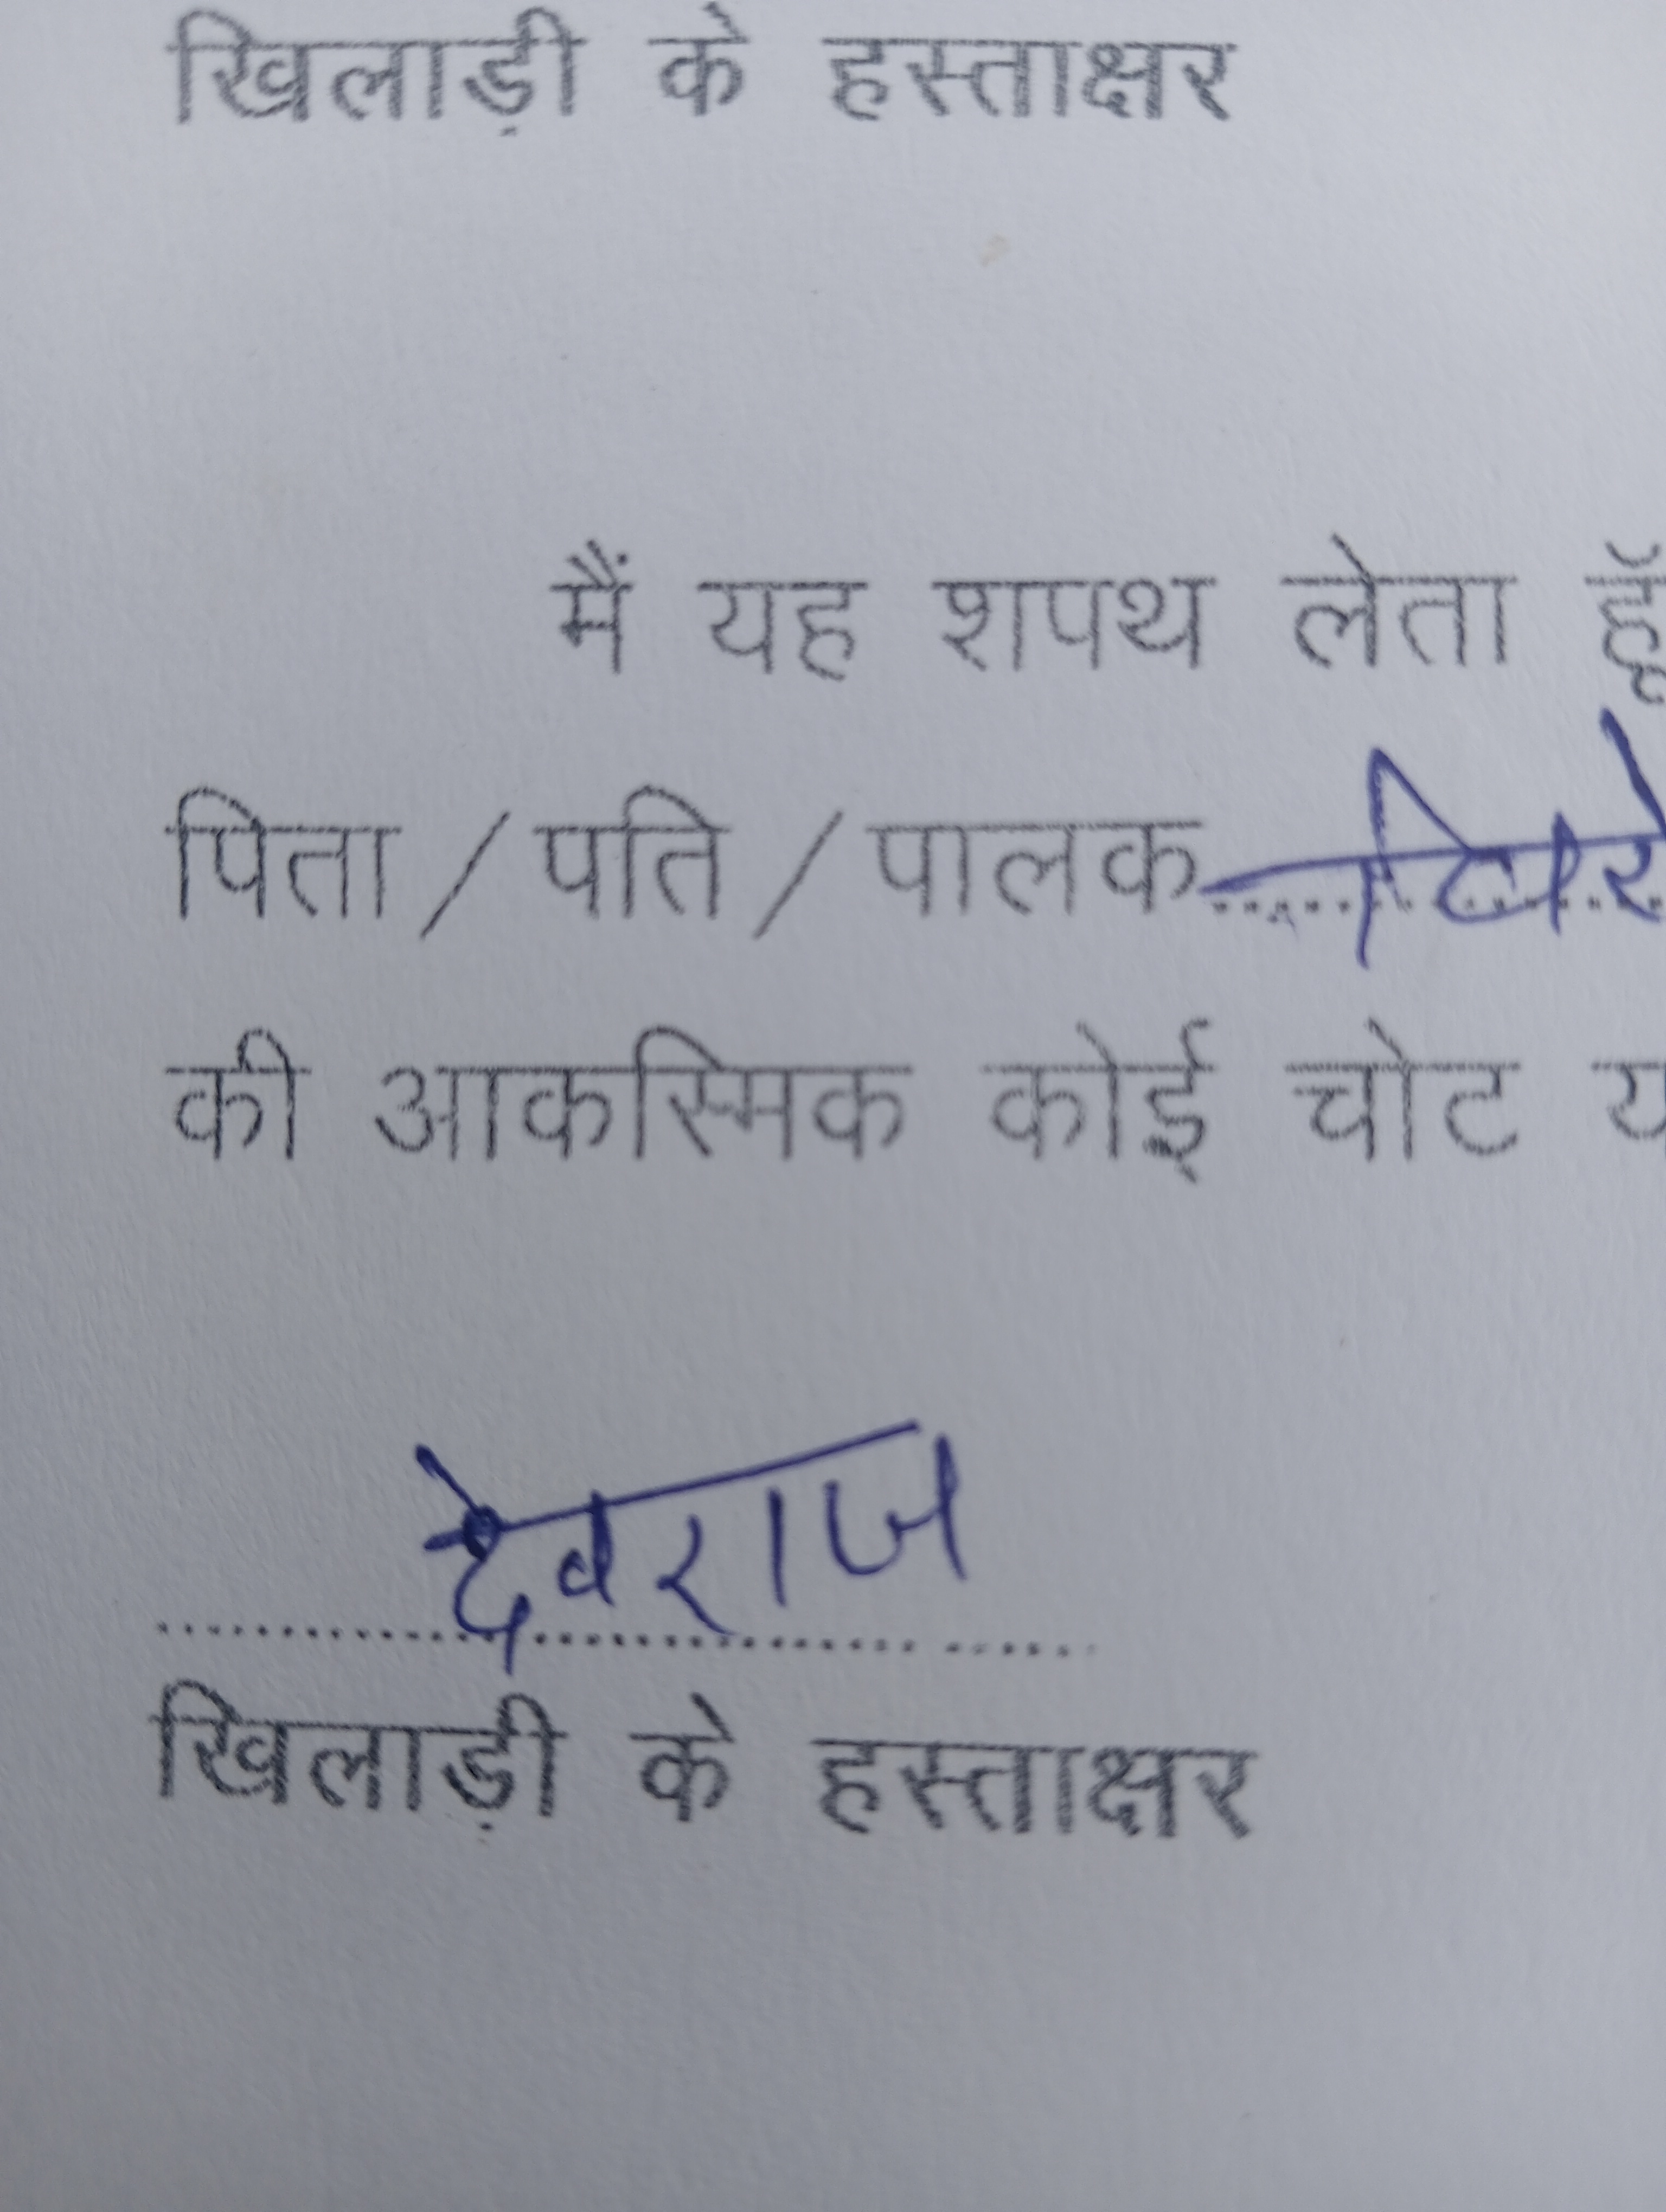 खिलाड़ी के हस्ताक्षर
मैं यह शपथ लेता हूँ
पिता / पति / पालक
की आकस्मिक कोई चोट
देवराज
खिलाड़ी के हस्ताक्षर